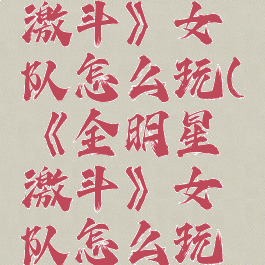 激斗》女
队怎么玩(
《全明星
激斗》女
队怎么玩